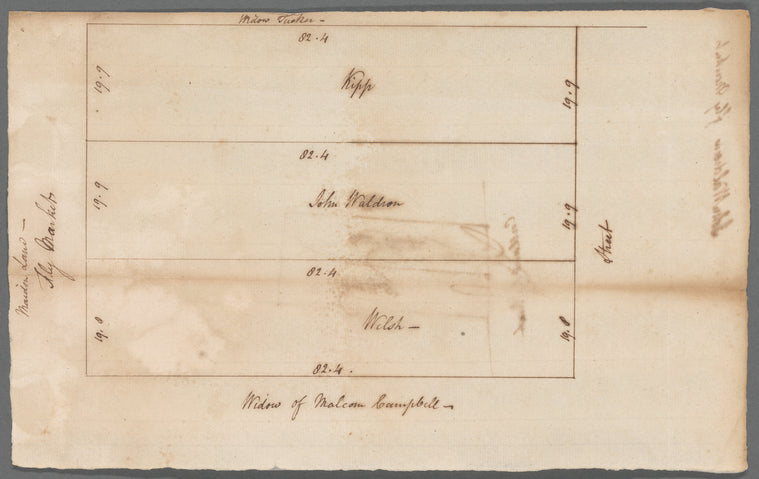 Widow Tucker -
82.4
19.9
Kipp
19.9
82.4
19.9
John Waldron
19.9
Street
Maiden Lane -
Fly Market
82.4
19.8
Welsh -
19.8
82.4.
Widow of Malcom Campbell -